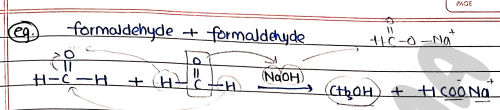 PAGE
eg. formaldehyde + formaldehyde
O
H-C-O-Na+
O O
H-C-H + H-C-H NaOH CH3OH + HCOO-Na+